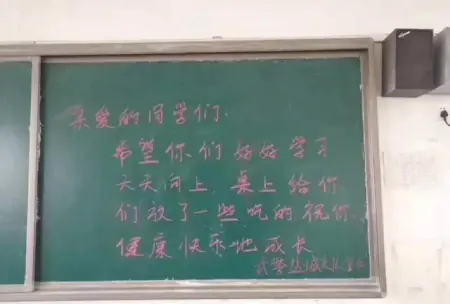 亲爱的同学们:
希望你们好好学习
天天向上,桌上给你
们放了一些吃的祝你
健康快乐地成长
武警